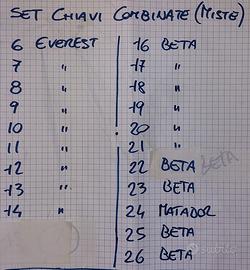 SET CHIAVI COMBINATE (MISTE)
6 EVEREST 16 BETA
7 " 17 "
8 " 18 "
9 " 19 "
10 " 20 "
11 " 21 "
12 " 22 BETA BETA
13 " 23 BETA
14 " 24 MATADOR
25 BETA
26 BETA
subito